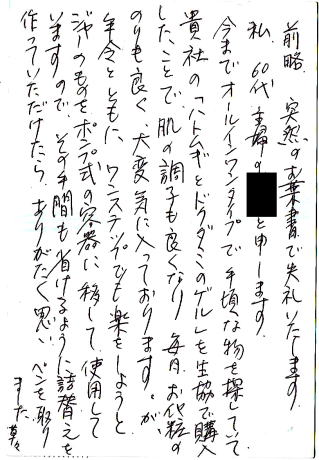 前略 突然のお葉書で失礼いたします。
私、60代主婦の と申します。
今までオールインワンタイプで手頃な物を探していて
貴社の「ハトムギとドクダミのゲル」を生協で購入
したことで、肌の調子も良くなり 毎日、お化粧の
のりも良く、大変気に入っております。が、
年令とともに、ワンステップでも楽をしようと
ジャーのものをポンプ式の容器に移して、使用して
いますので、その手間も省けるように詰替えを
作っていただけたら、ありがたく思い、ペンを取り
ました。草々